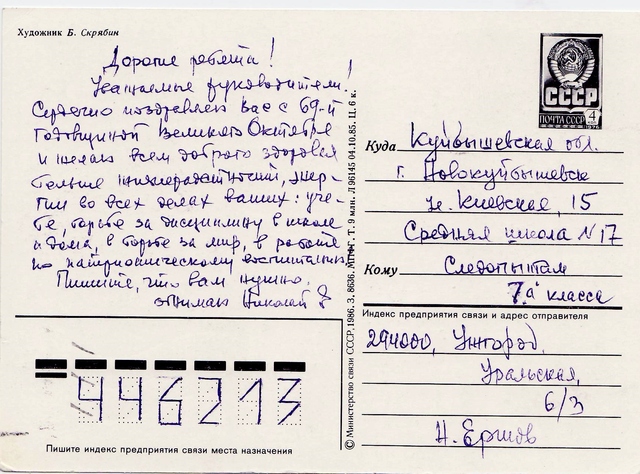 Художник Б. Скрябин
Дорогие ребята!
Уважаемые руководители!
Сердечно поздравляю Вас с 69-й
Годовщиной Великого Октября
и желаю всем доброго здоровья
больше жизнерадостности, энер-
гии во всех делах ваших: уче-
бе, борьбе за дисциплину в школе
и дома, в борьбе за мир, в работе
по патриотическому воспитанию.
Пишите, что вам нужно.
Обнимаю Николай
446213
Пишите индекс предприятия связи места назначения
© Министерство связи СССР, 1986, З. 8636. МПФГ. Т. 9 млн. Л 96145 04.10.85. Ц. 6 к.
СССР
ПОЧТА СССР 4
1976
Куда Куйбышевская обл.
г. Новокуйбышевск
ул. Киевская, 15
Средняя школа N 17
Кому Следопытам
7"а" класса
Индекс предприятия связи и адрес отправителя
294000, Ужгород,
Уральская,
6/3
Н. Ершов